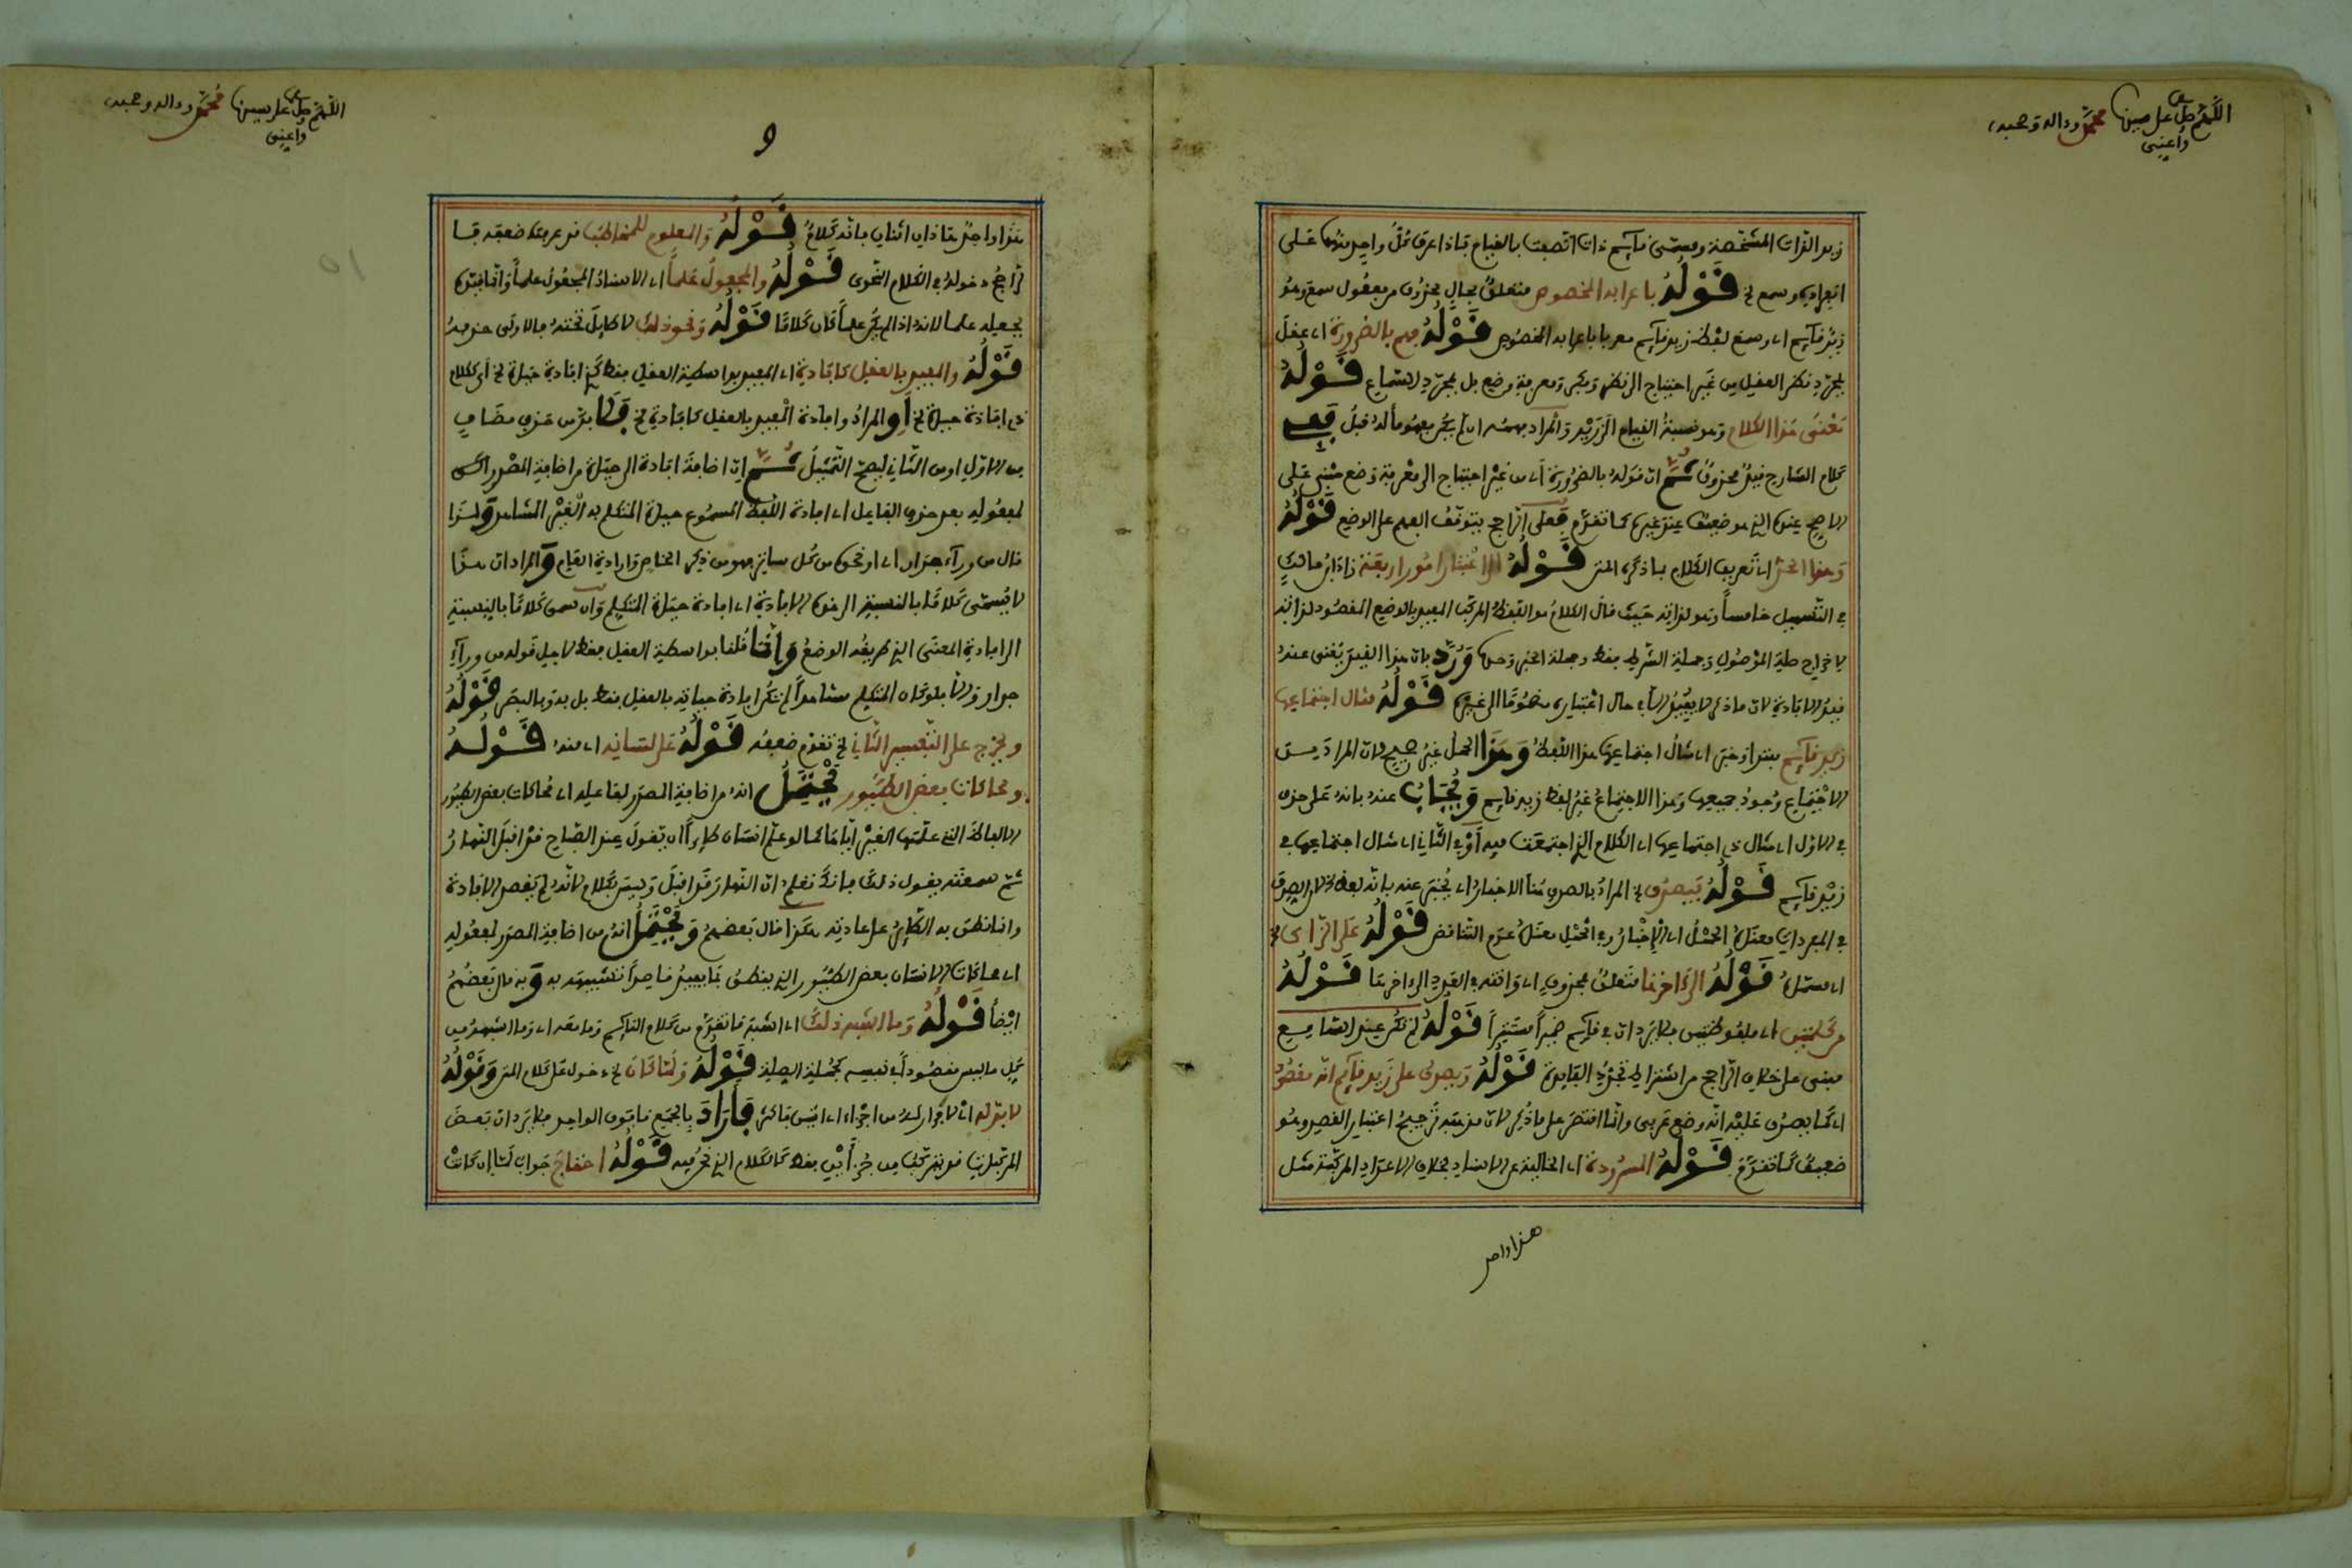 اللهم صل على سيدنا محمد وءاله وصحبه
وأعني
زيد الذات المشخصة ومسمى قايم ذات اتصفت بالقيام فإذا عرف كل واحد منهما على
انفراده وسمع الخ قَوْلُهُ باعرابه المخصوص متعلق بحال محذوف من مفعول سمع وهو
زيد قايم اي وسمع لفظ زيد قايم معربا باعرابه المخصوص قَوْلُهُ فهم بالضرورة اي عقل
بمجرد نظر العقل من غير احتياج الى نظر وفكر ومعرفة وضع بل بمجرد السماع قَوْلُهُ
معنى هذا الكلام وهو نسبة القيام الى زيد والمراد بهمه ان لم يكن مفهوما له قبل ففي
كلام الشارح قيد محذوف ثم ان قوله بالضرورة اي من غير احتياج الى معرفة وضع مبني على
الاصح عنده الذي هو ضعيف عند غيره كما تقدم فعلى الراجح يتوقف الفهم على الوضع قَوْلُهُ
وهذا الحد اي تعريف الكلام بما ذكره المتن قَوْلُهُ اعتبار امور اربعة زاد ابن مالك
في التسهيل خامسا وهو لذاته حيث قال الكلام هو اللفظ المركب المفيد بالوضع المقصود لذاته
لاخراج صلة الموصول وجملة الشرط فقط وجملة الخبر وحدها وَرُدَّ بان هذا القيد يغني عنه
قيد الافادة لان ما ذكر لا يفيد الا في حال اعتباره مضموما الى غيره قَوْلُهُ مثال اجتماعها
زيد قايم مبتدا وخبر اي مثال اجتماعها هذا اللفظ وَهَذَا الحمل غير صحيح لان المراد من
الاجتماع وجود جميعها وهذا الاجتماع غير لفظ زيد قايم وَيُجَابُ عنه بانه على حذف
في الاول اي مثال ذي اجتماعها اي الكلام الذي اجتمعت فيه او في الثاني اي مثال اجتماعها في
زيد قايم قَوْلُهُ فيصدق الخ المراد بالصدق هنا الاخبار اي يخبر عنه بانه لفظ الصدق
في المفردات معناه الحمل اي الاخبار وفي الجمل معناه عدم التناقض قَوْلُهُ على الزاى الخ
اي مشتمل قَوْلُهُ الى ءاخرها متعلق بمحذوف اي وافقه في القيد الى ءاخرها قَوْلُهُ
من كلمتين اي ملفوظتين فلا يرد ان في قايم ضميرا مستترا قَوْلُهُ لم تكن عند السامع
مبنى على خلاف الراجح من اشتراط تجدد الفايدة قَوْلُهُ ويصدق على زيد قايم انه مقصود
اي كما يصدق عليه انه وضع عربي وانما اقتصر على ما ذكر لان مذهبه ترجيح اعتبار القصد وهو
ضعيف كما تقدم قَوْلُهُ المسرودة اي الخالية عن الاسناد بخلاف الاعداد المركبة مثل
هذا واحد
اللهم صل على سيدنا محمد وءاله وصحبه
وأعني
9
هذا واحد هاذان اثنان فانه كلام قَوْلُهُ والمعلوم للمخاطب قد عرفت ضعفه فيا
لراجح دخوله في الكلام النحوي قَوْلُهُ والمجعول علما اي الاسناد المجعول علما وانما قيده
بجعله علما لانه اذا لم يكن علما كان كلاما قَوْلُهُ ونحو ذلك لا طايل تحته فالاولى حذفه
قَوْلُهُ والمفيد بالعقل كافادة اي المفيد بواسطة العقل فقط كذي افادة حياة الخ أي ككلام
ذي افادة حياة الخ أو المراد وافادة المفيد بالعقل كافادة الخ فَلَا بد من حذف مضاف
من الاول او من الثاني ليصح التمثيل ثُمَّ ان اضافة افادة الى حياة من اضافة المصدر الى
لمفعوله بعد حذف الفاعل اي افادة اللفظ المسموع حياة المتكلم به الغير المشاهد وَلذا
قال من ورآء جدار اي او نحوه من كل ساتر فهو من ذكر الخاص وارادة العام وَالمراد ان هذا
لا يسمى كلاما بالنسبة الى هذه الافادة اي افادة حياة المتكلم وان سمى كلاما بالنسبة
الى افادة المعنى الذي طريقه الوضع وَإنَّمَا قلنا بواسطة العقل فقط لاجل قوله من ورآء
جدار والا فلو كان المتكلم مشاهدا لم تكن افادة حياته بالعقل فقط بل به وبالبصر قَوْلُهُ
ويخرج على التفسير الثاني الخ تقدم ضعفه قَوْلُهُ على لسانه اي منه قَوْلُهُ
ومحاكات بعض الطيور يَحْتَمِلُ انه من اضافة المصدر لفاعله اي محاكات بعض الطيور
الالفاظ التي علمها الغير اياها كما لو علم انسان طايرا ان يقول عند الصباح قد اقبل النهار
ثم سمعته يقول ذلك فانك تعلم ان النهار قد اقبل وليس بكلام لانه لم يقصد الافادة
وانما نطق به الطاير على عادته هكذا قال بعضهم وَيَحْتَمِلُ انه من اضافة المصدر لمفعوله
اي محاكات الانسان بعض الطيور الذي ينطق بما يفيد قاصدا تشبيهه به وَبه قال بعضهم
ايضا قَوْلُهُ وما اشبه ذلك اي اشبه ما تقدم من كلام النايم وما معه اي وما اشبهه من
كل ما ليس مقصودا في نفسه كجملة الصلة قَوْلُهُ ولما كان الخ دخول على كلام المتن وَقَوْلُهُ
لا بد له اي لا فرار له من اجزاء اي اثنين فاكثر فَأَرَادَ بالجمع ما فوق الواحد فلا يرد ان بعض
المركبات قد يتركب من جزأين فقط كالكلام الذي نحن فيه قَوْلُهُ احتاج جواب لما ان كانت